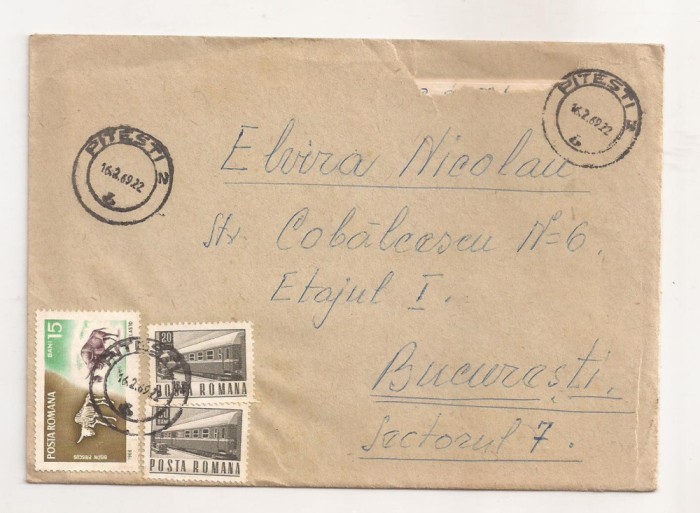 PITEȘTI 2
16.2.69.22
PITEȘTI 2
16.2.69.22
Elvira Nicolau
Str. Cobălcescu N=6.
Etajul I.
București.
Sectorul 7.
BANI 15
POSTA ROMANA
BIZON PRISCUS
1966
20
POSTA ROMANA
BANI
POSTA ROMANA
PITEȘTI
16.2.69.22